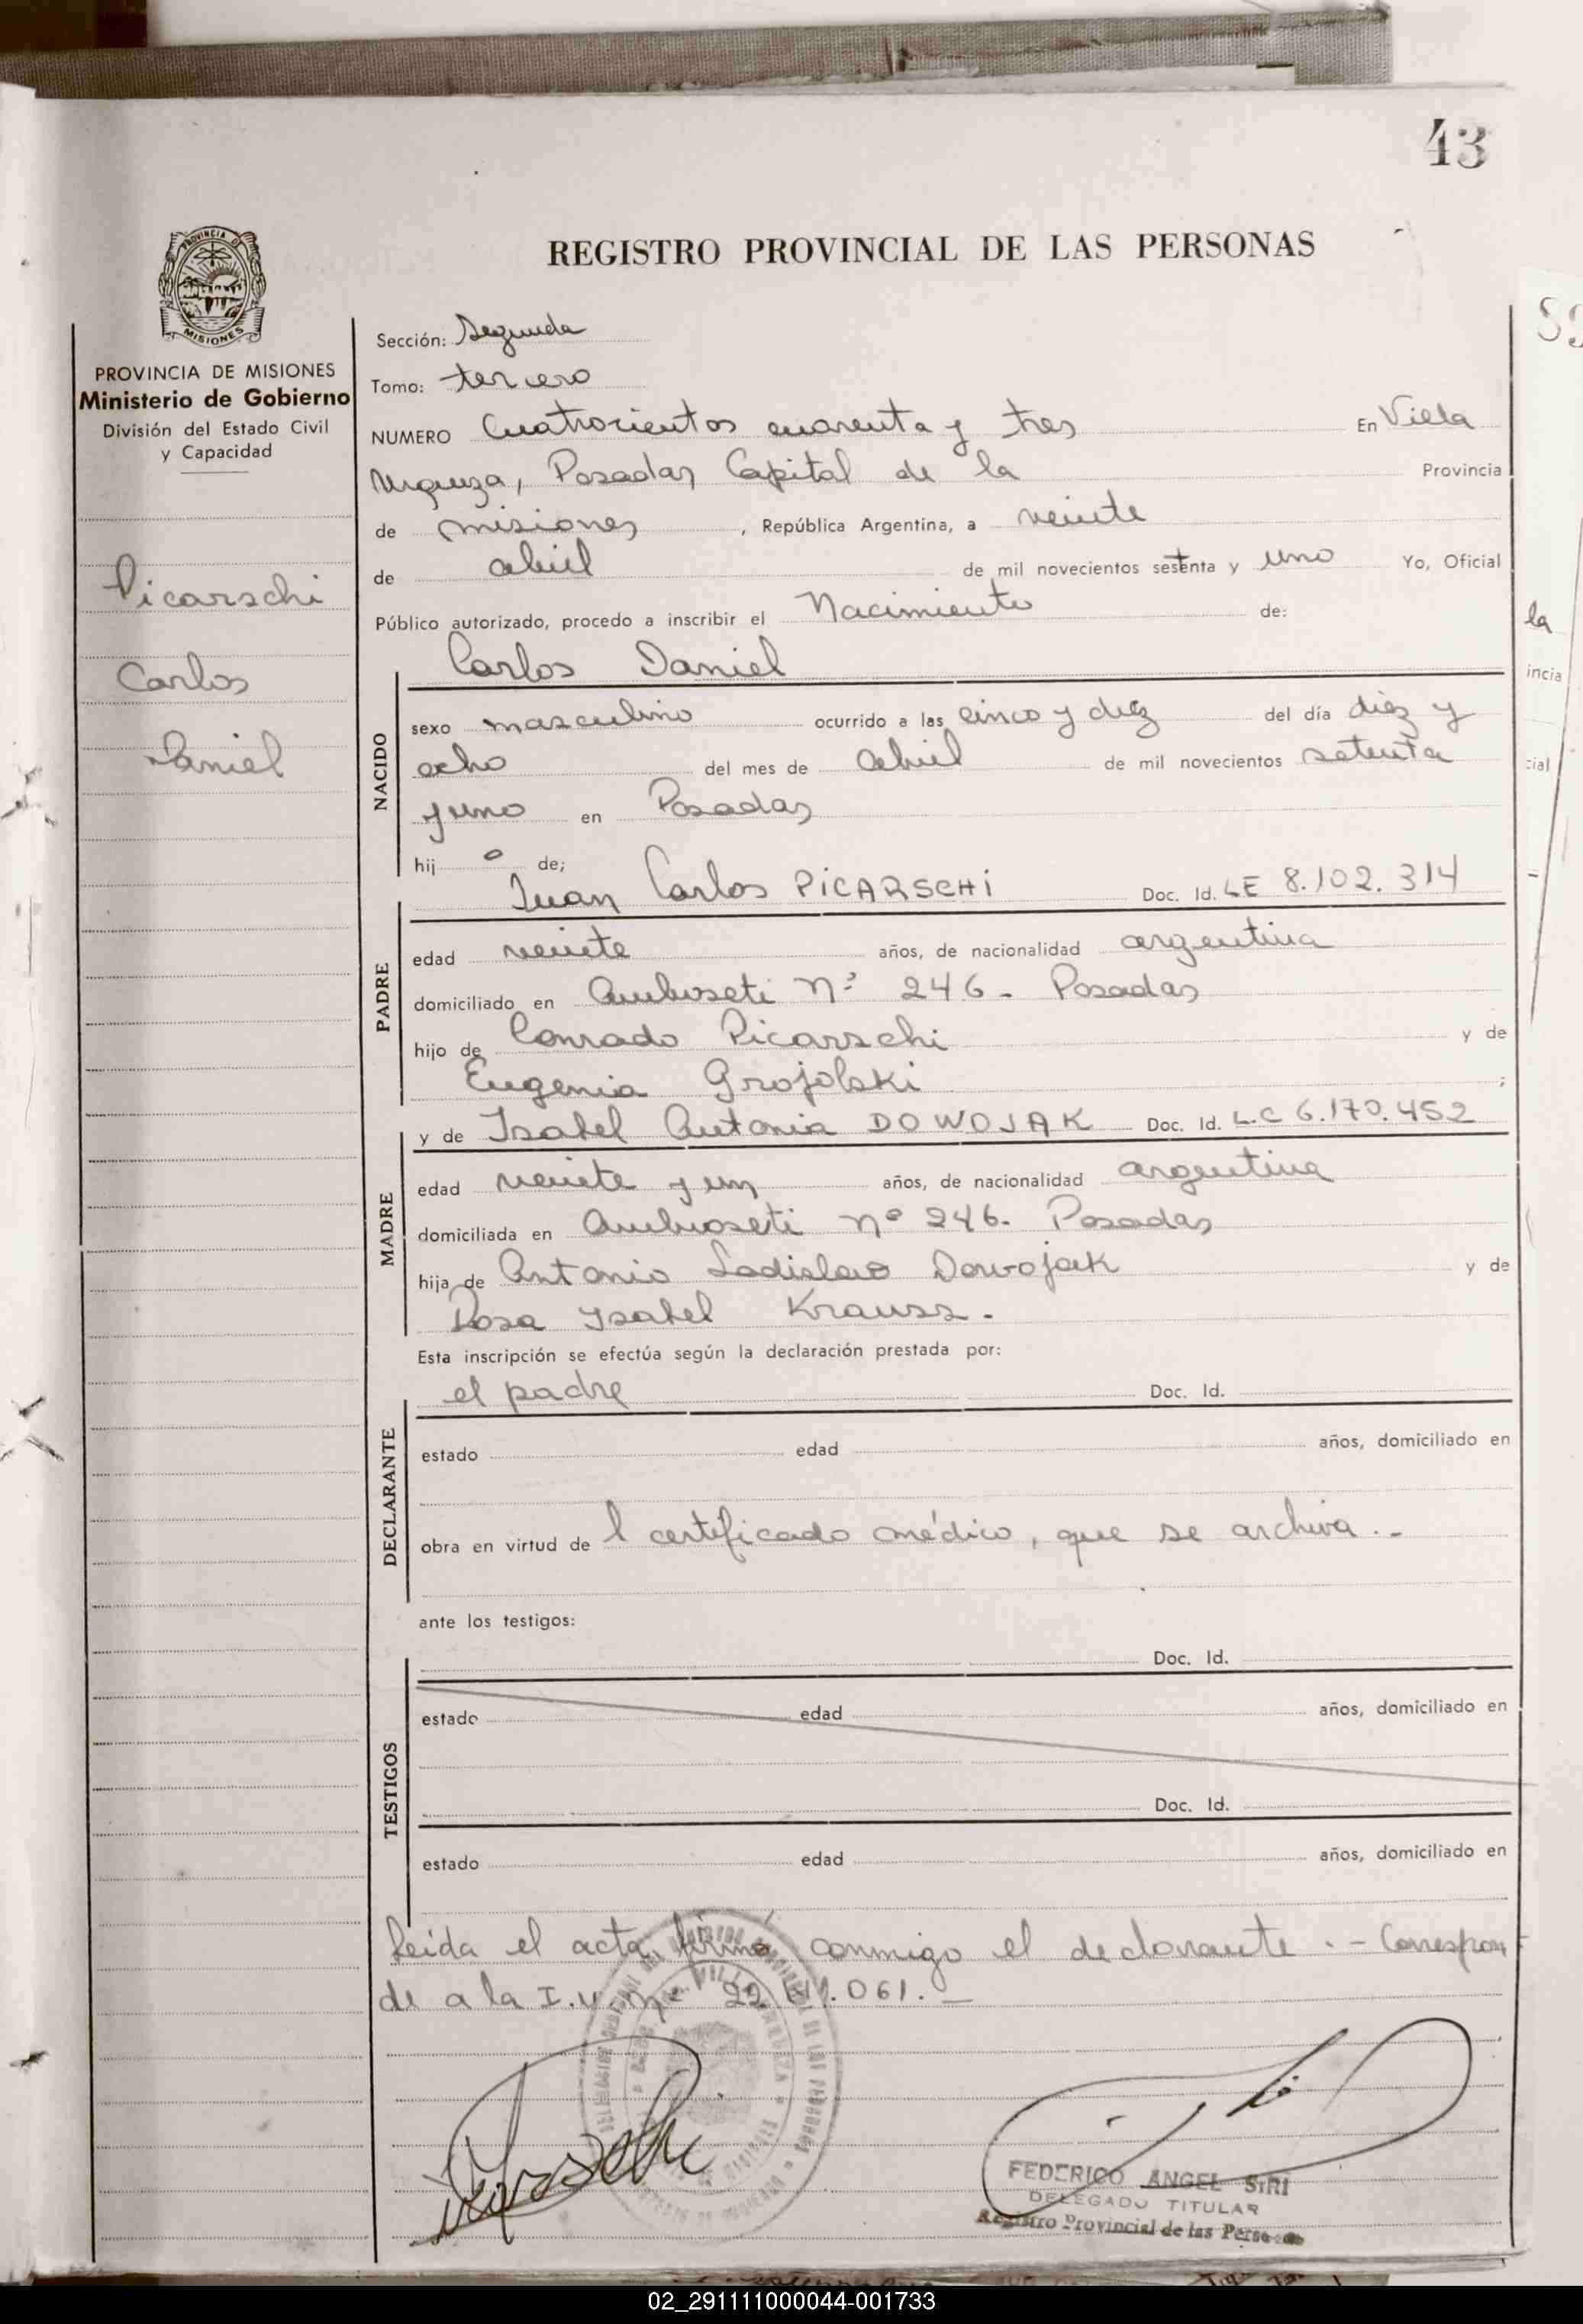 43
REGISTRO PROVINCIAL DE LAS PERSONAS
PROVINCIA DE MISIONES
Ministerio de Gobierno
División del Estado Civil
y Capacidad
Picarschi
Carlos
Daniel
Sección: Segunda
Tomo: tercero
NUMERO Cuatrocientos cuarenta y tres En Villa
Urquiza, Posadas Capital de la Provincia
de misiones, República Argentina, a veinte
de abril de mil novecientos setenta y uno Yo, Oficial
Público autorizado, procedo a inscribir el Nacimiento de:
Carlos Daniel
NACIDO
sexo masculino ocurrido a las cinco y diez del día diez y
ocho del mes de abril de mil novecientos setenta
y uno en Posadas
hij o de;
Juan Carlos PICARSCHI Doc. Id. LE 8.102.314
PADRE
edad veinte años, de nacionalidad argentina
domiciliado en Ambroseti Nº 246 - Posadas
hijo de Conrado Picarschi y de
Eugenia Grojolski ;
y de Isabel Antonia DOWOJAK Doc. Id. L.C 6.170.452
MADRE
edad veinte y un años, de nacionalidad argentina
domiciliada en Ambroseti nº 246. Posadas
hija de Antonio Ladislao Dowojak y de
Rosa Ysabel Krauss.
Esta inscripción se efectúa según la declaración prestada por:
el padre Doc. Id.
DECLARANTE
estado edad años, domiciliado en
obra en virtud de l certificado médico, que se archiva.-
ante los testigos:
Doc. Id.
TESTIGOS
estado edad años, domiciliado en
Doc. Id.
estado edad años, domiciliado en
Leida el acta, firma conmigo el declarante.- Correspon
de a la I.U. nº 061.-
FEDERICO ANGEL SIRI
DELEGADO TITULAR
Registro Provincial de las Personas
la
incia
cial
02_291111000044-001733